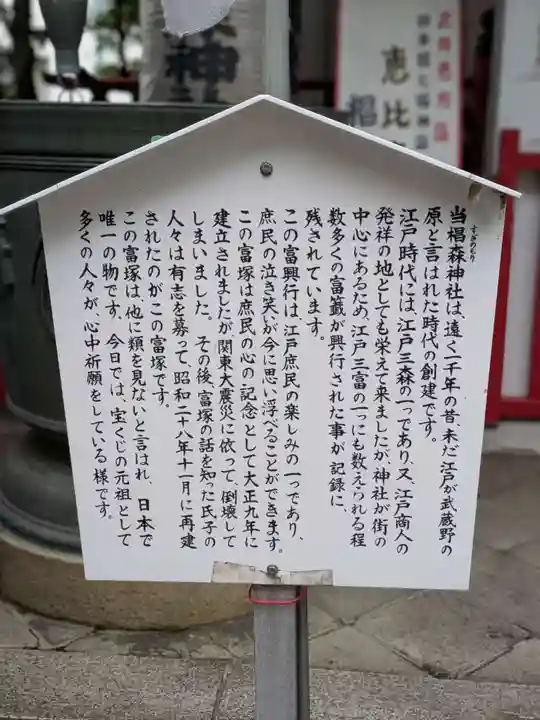 神社
恵比
当椙森神社は、遠く一千年の昔、未だ江戸が武蔵野の
すぎのもり
原と言はれた時代の創建です。
江戸時代には、江戸三森の一つであり、又、江戸商人の
発祥の地としても栄えて来ましたが、神社が街の
中心にあるため、江戸三富の一つにも数えられる程
数多くの富籤が興行された事が記録に、
残されています。
この富興行は、江戸庶民の楽しみの一つであり、
庶民の泣き笑いが今に思い浮べることができます。
この富塚は庶民の心の記念として大正九年に
建立されましたが関東大震災に依って、倒壊して
しまいました。その後、富塚の話を知った氏子の
人々は有志を募って、昭和二十八年十一月に再建
されたのがこの富塚です。
この富塚は、他に類を見ないと言はれ、日本で
唯一の物です、今日では、宝くじの元祖として
多くの人々が、心中祈願をしている様です。